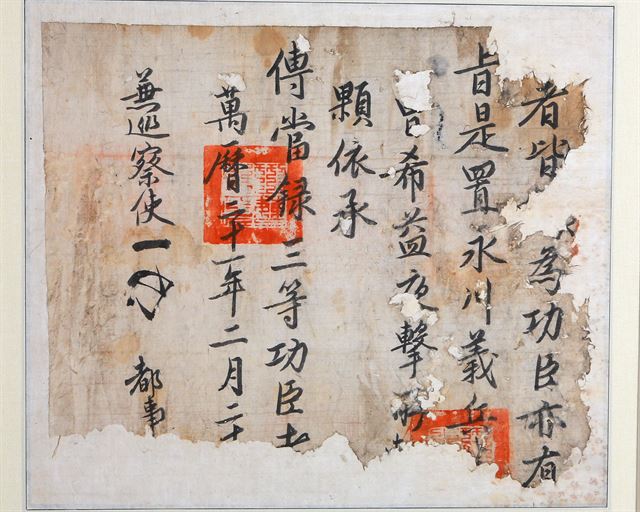 者皆 為功臣亦有
旨是置永川義兵
曺希益夜擊斬
顆依承
傳當錄三等功臣者
萬曆二十一年二月二十
兼巡察使
都事